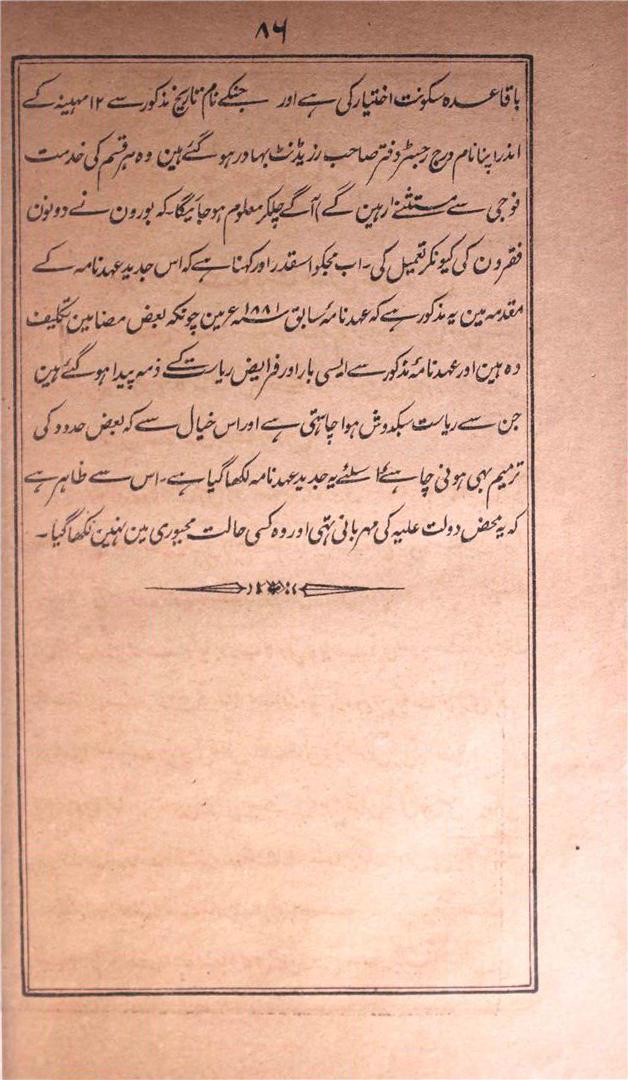 ۸۶
باقاعدہ سکونت اختیار کی ہے اور جنکے نام تاریخ مذکور سے ۱۲ مہینہ کے
اندر اپنا نام درج رجسٹر دفتر صاحب رزیڈنٹ بہادر ہو گئے ہین وہ ہر قسم کی خدمت
فوجی سے مستثنےٰ رہین گے) آگے چلکر معلوم ہو جائیگا۔ کہ بورون نے دونون
فقرون کی کیونکر تعمیل کی۔ اب مجکو اسقدر اور کہنا ہے کہ اس جدید عہدنامہ کے
مقدمہ مین یہ مذکور ہے کہ عہدنامۂ سابق ۱۸۸۱ء مین چونکہ بعض مضامین تکلیف
دہ ہین اور عہدنامۂ مذکور سے ایسی بار اور فرایض ریاست کے ذمہ پیدا ہو گئے ہین
جن سے ریاست سبکدوش ہوا چاہتی ہے اور اس خیال سے کہ بعض حدود کی
ترمیم بہی ہونی چاہئے اسلئے یہ جدید عہدنامہ لکھا گیا ہے۔ اس سے ظاہر ہے
کہ یہ محض دولت علیہ کی مہربانی تہی اور وہ کسی حالت مجبوری مین نہین لکھا گیا۔